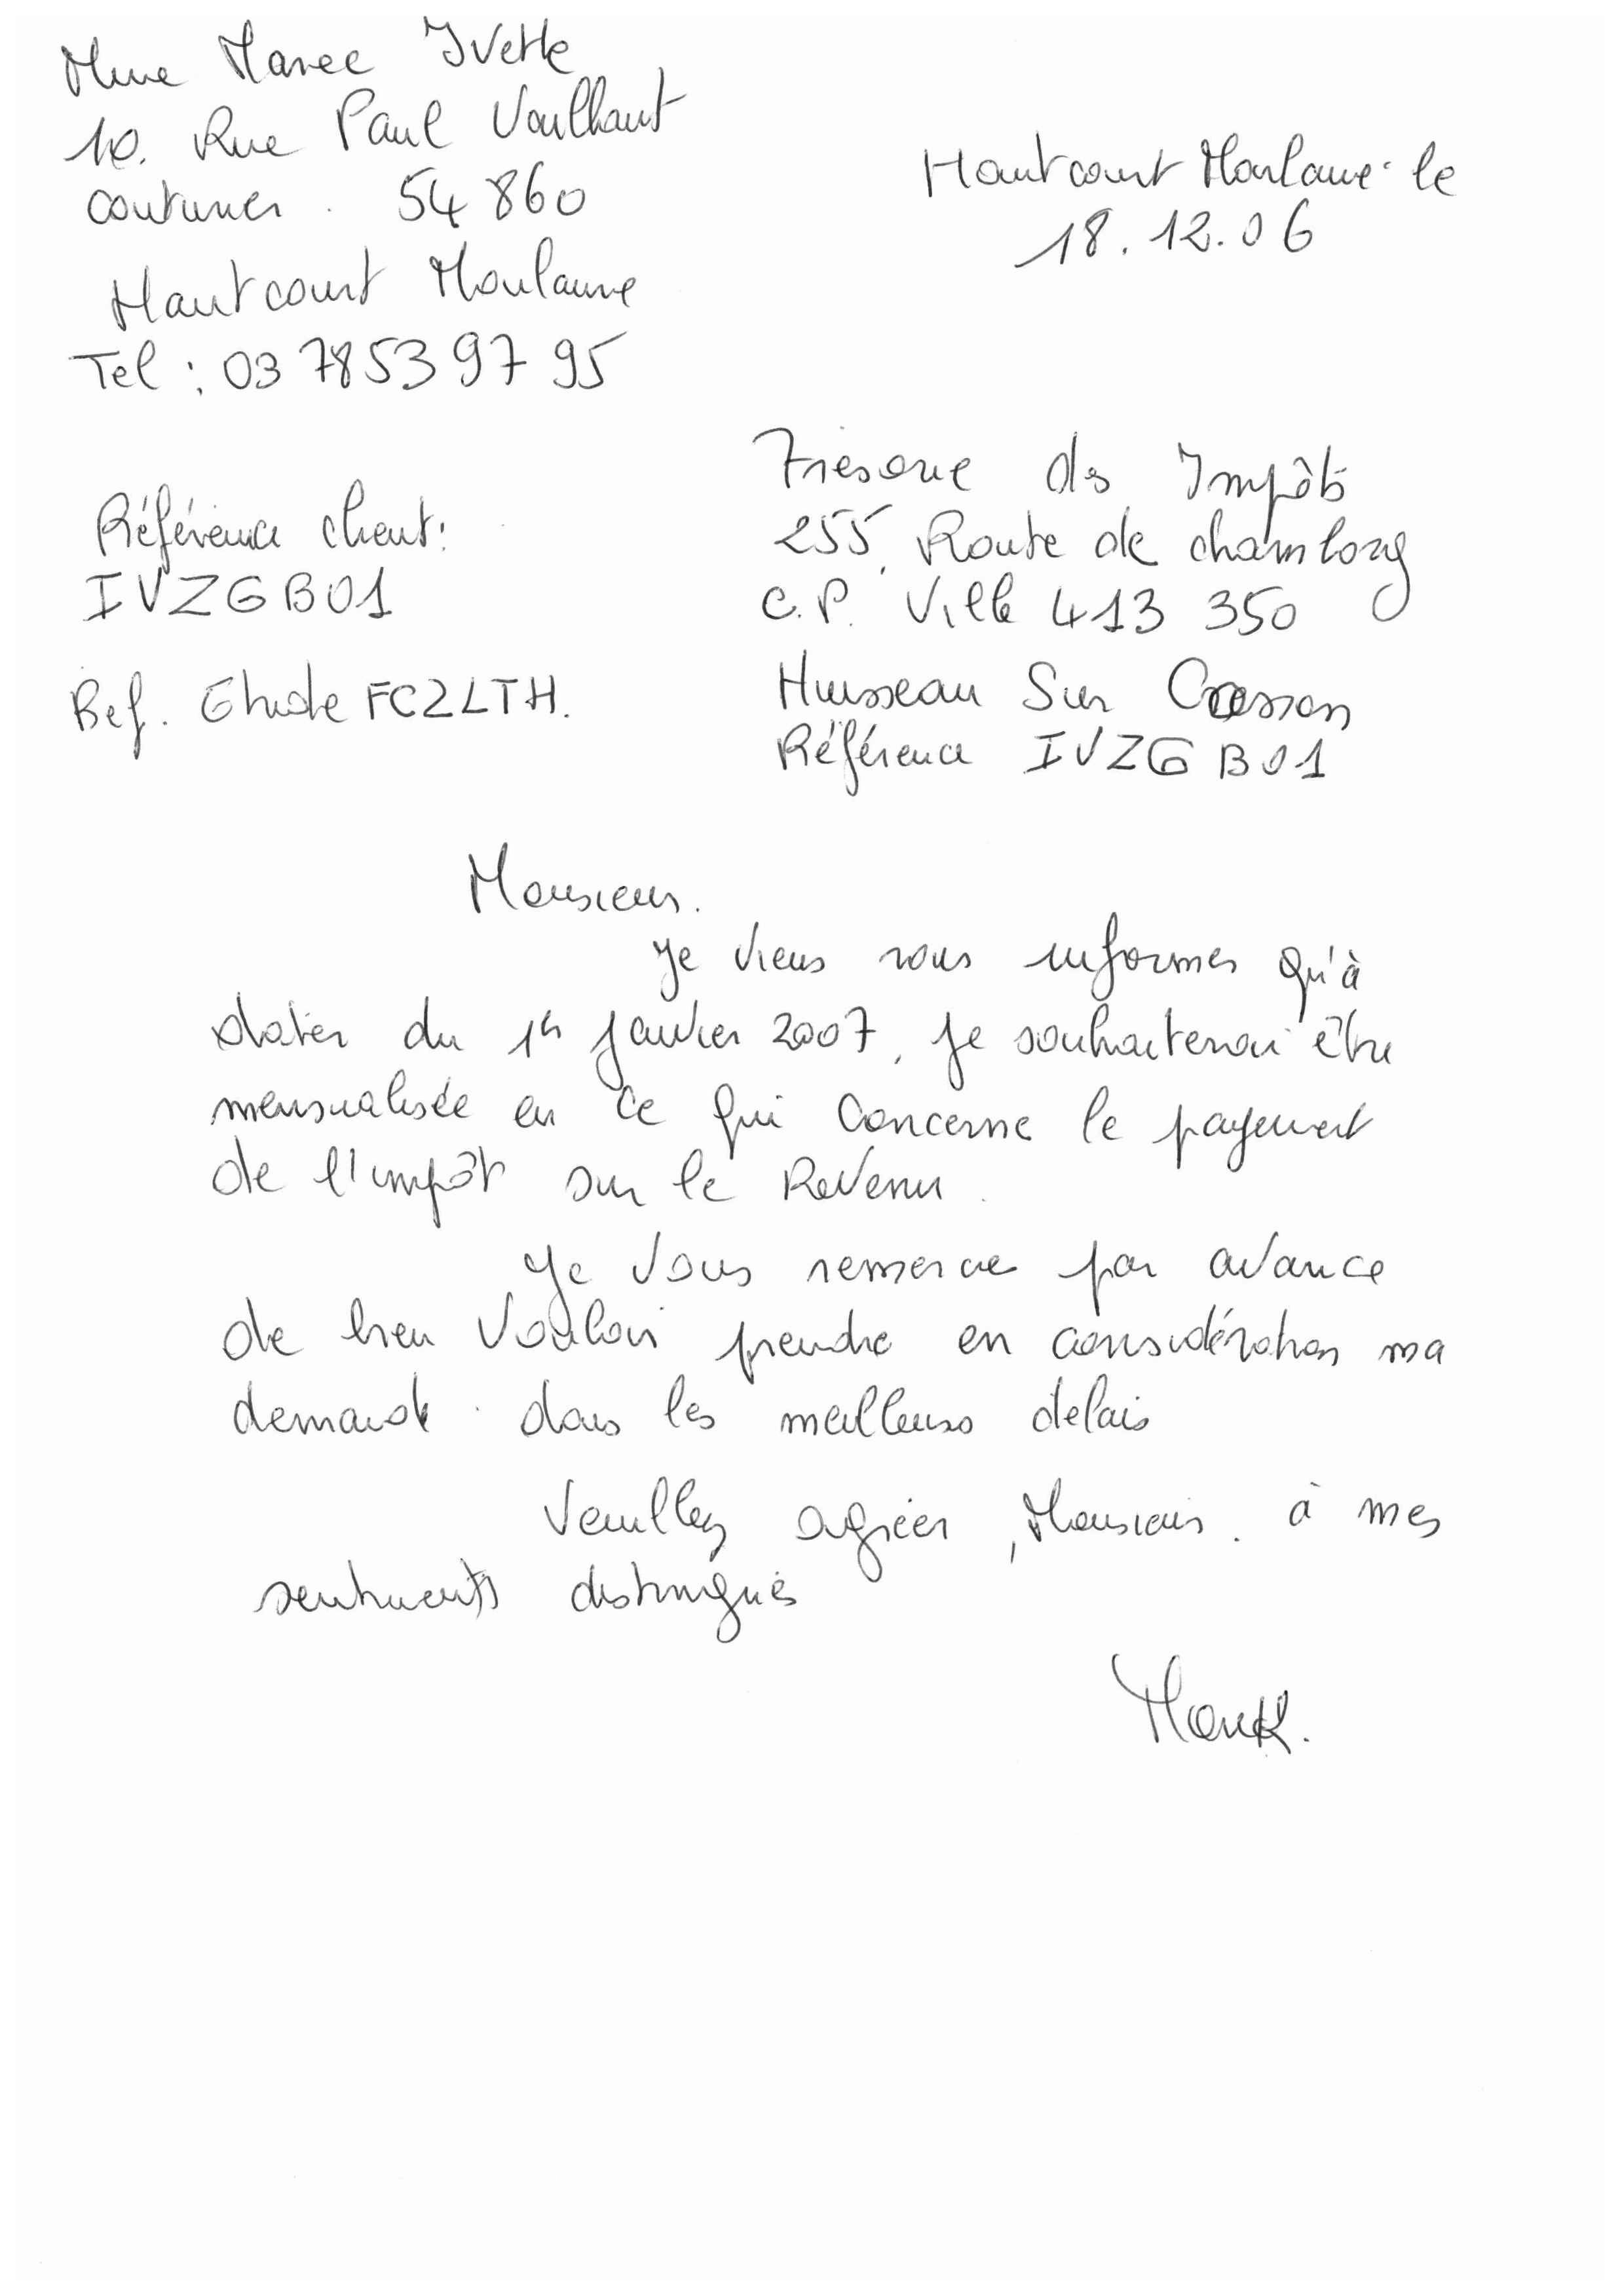 Mme Maree Yvette
10. Rue Paul Vaillant
couturier. 54 860
Hautcourt Moulaine
Tel : 03 78 53 97 95
Hautcourt Moulaine le
18.12.06
Référence client :
IVZGB01
Ref. Etude FC2LTH.
Trésorie des Impôts
255, Route de chambong
C.P. Ville 413 350
Huisseau Sur Cosson
Référence IVZGB01
Monsieur.
Je viens vous informer qu'à
dater du 1er janvier 2007, je souhaiterai être
mensualisée en ce qui concerne le payement
de l'impôt sur le Revenu.
Je vous remercie par avance
de bien vouloir prendre en considération ma
demande dans les meilleurs delais
Veuillez agréer, Monsieur. à mes
sentiments distingués